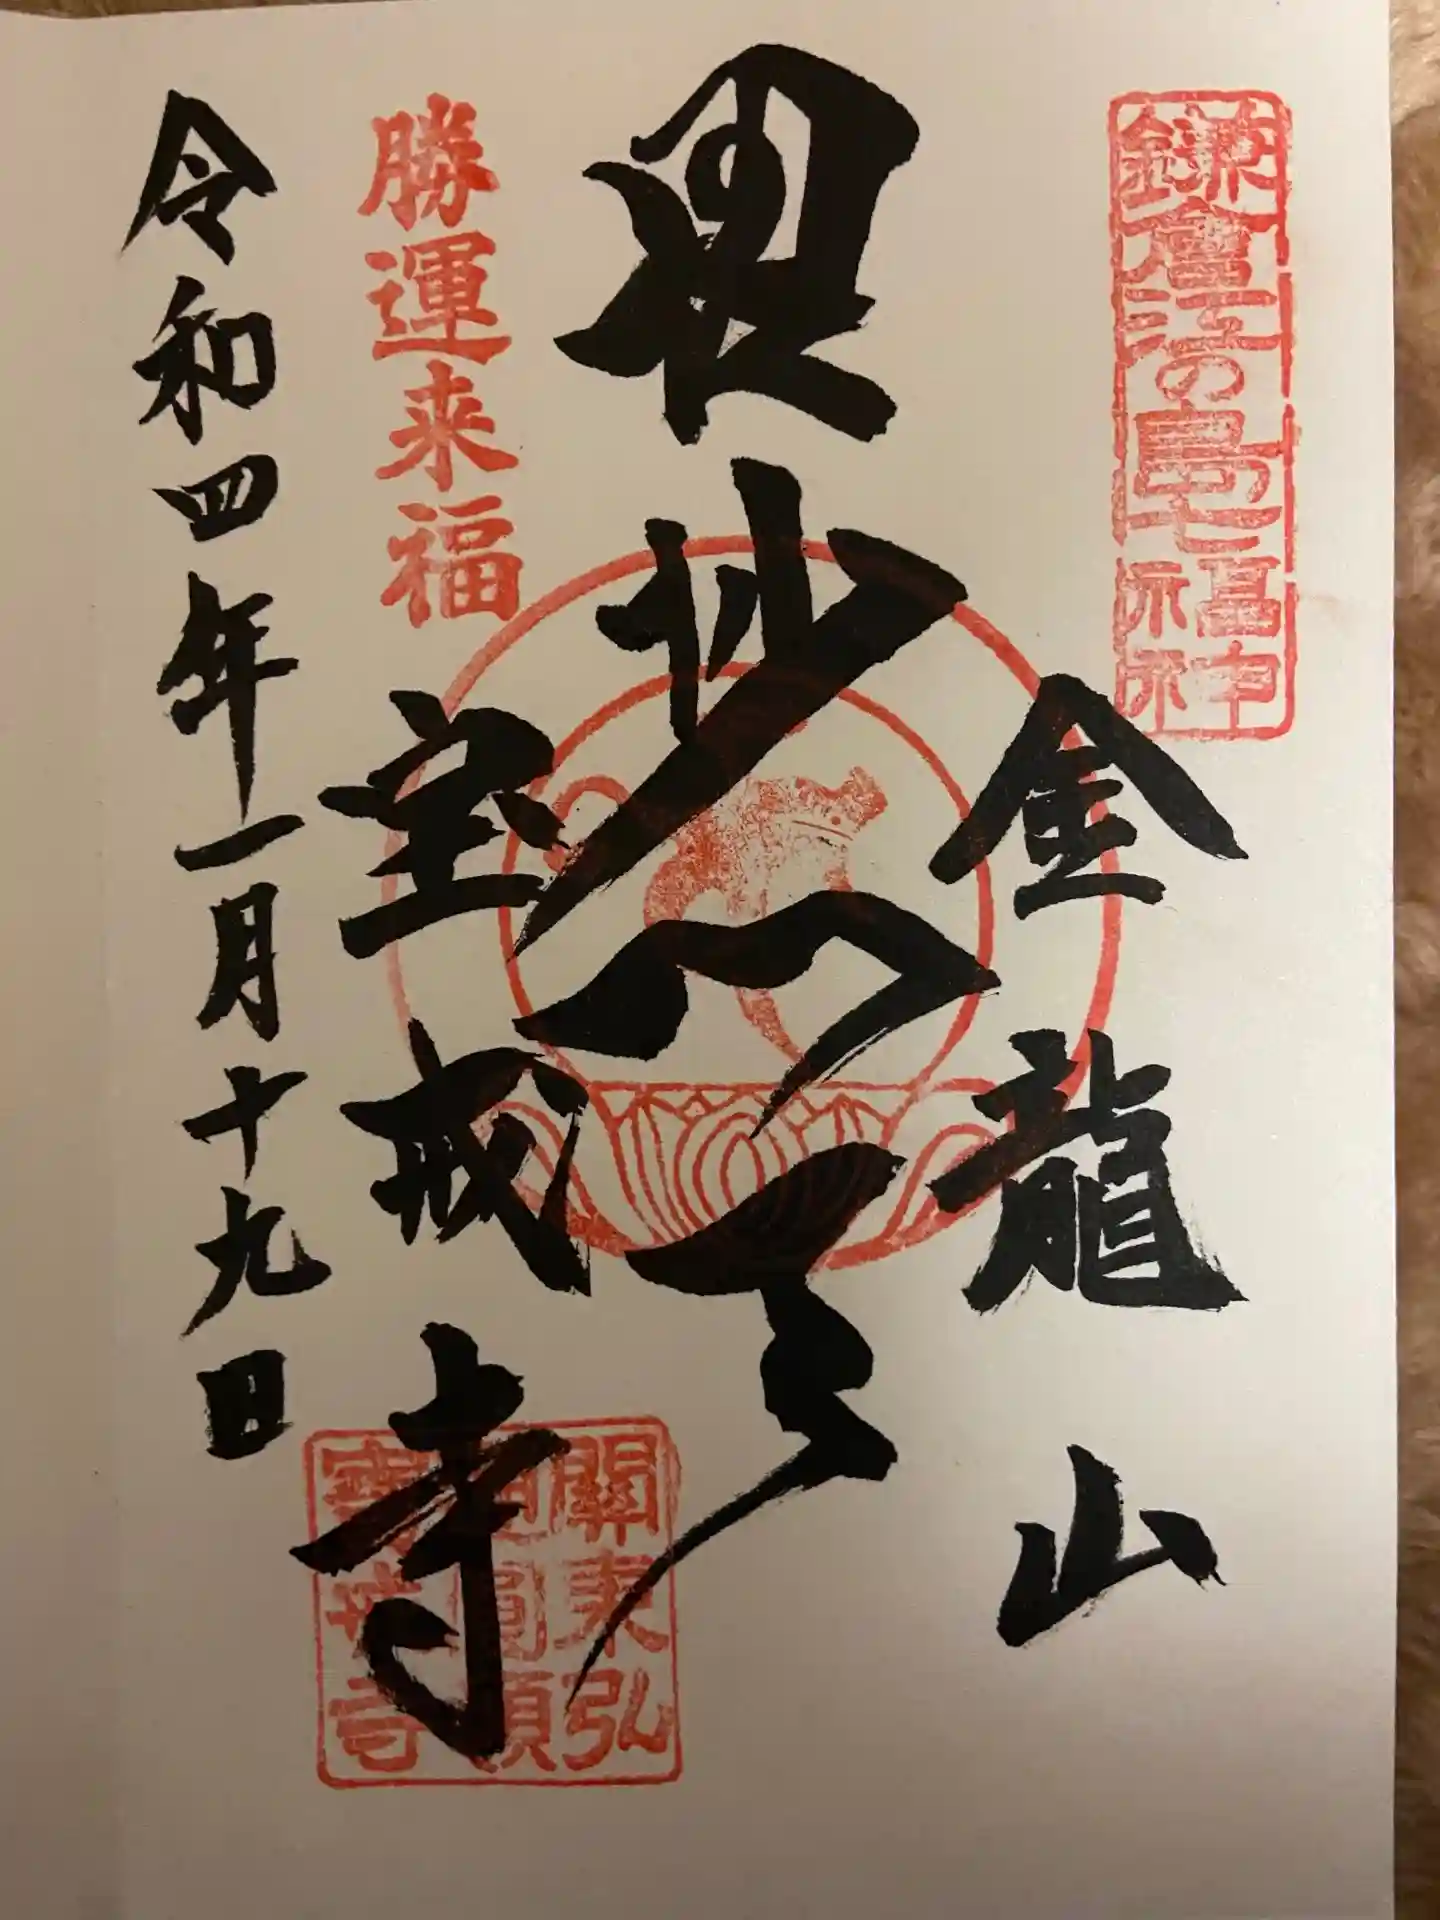 鎌倉江の島七福神
金龍山
毘沙門天
勝運来福
宝戒寺
關東弘
通圓頓
寶戒寺
令和四年一月十九日